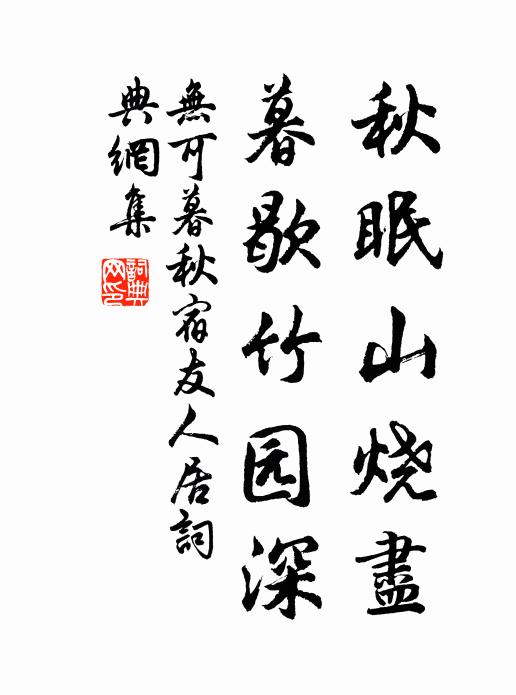 秋眠山烧盡
暮歇竹园深
無可暮秋宿友人居詞
典網集
詞典网印